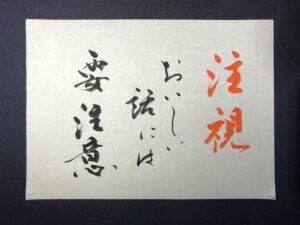 注視
おいしい
話には
要注意